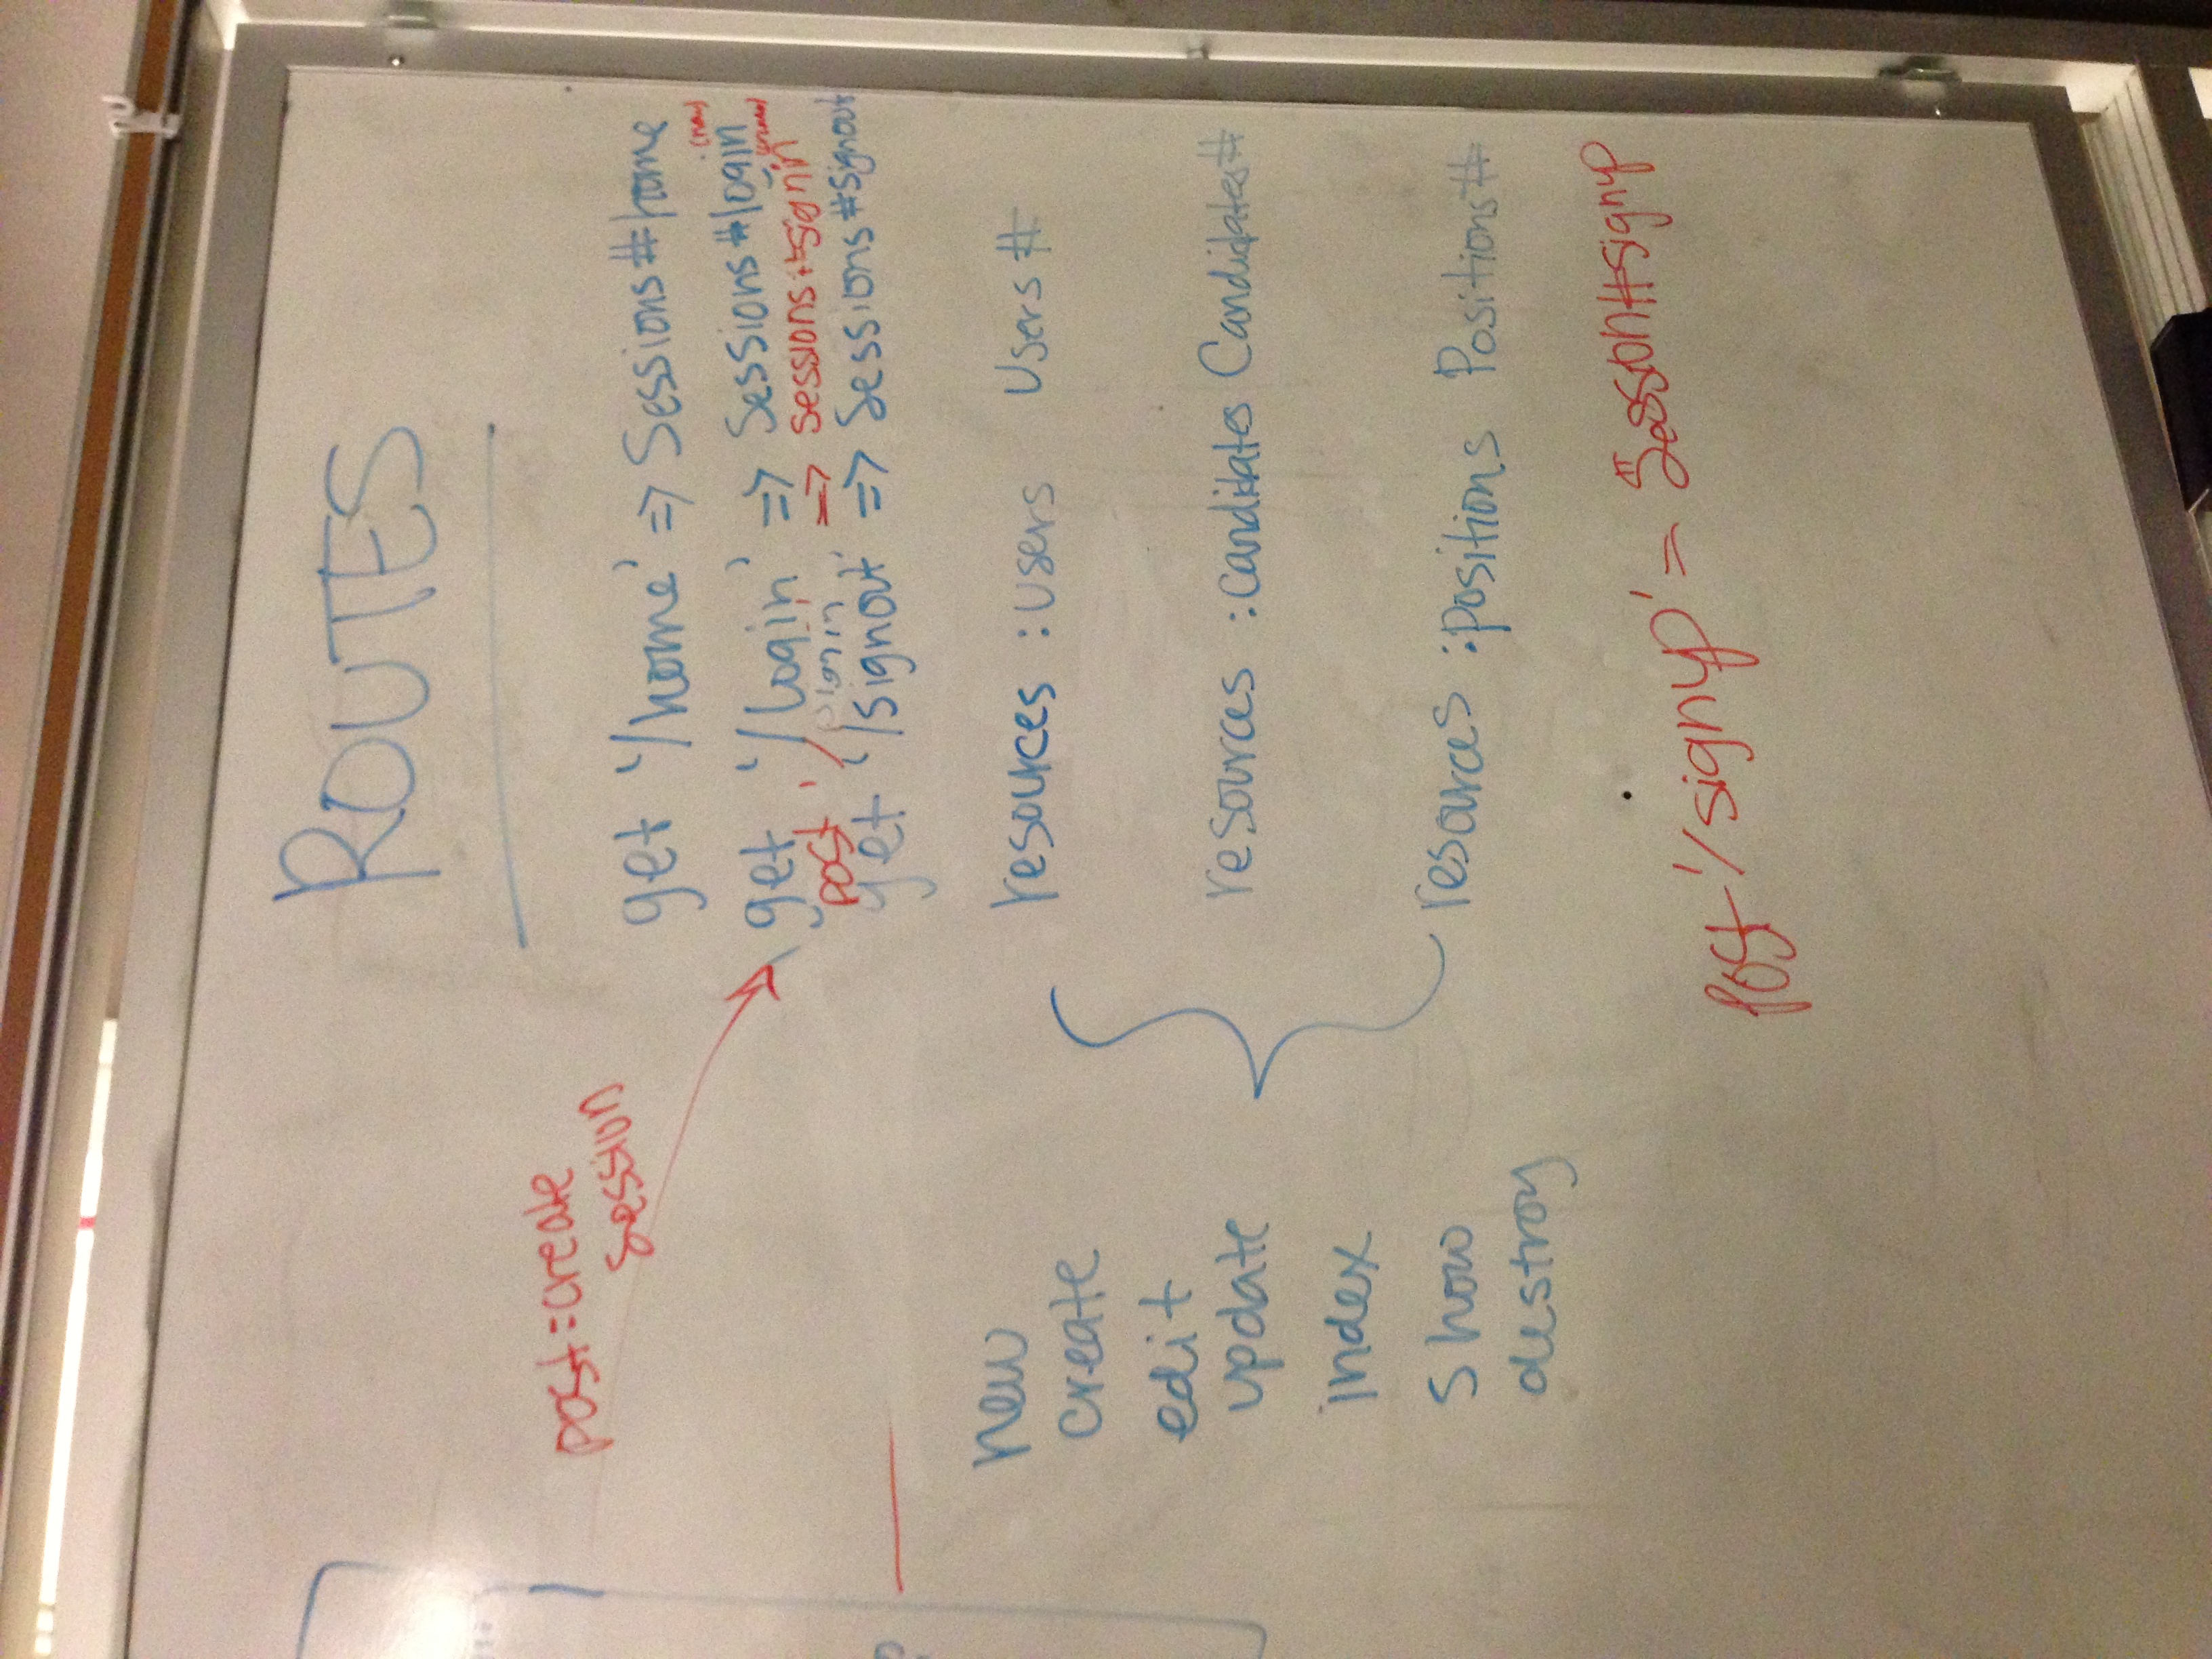 ROUTES
post=create
session
get '/home' => Sessions#home
(new)
get '/login' => Sessions#login
(create)
post '/signin' => sessions#signin
get '/signout' => Sessions#signout
new
create
edit
update
index
show
destroy
resources :users Users#
resources :candidates Candidates#
resources :positions Positions#
post '/signup' = Session#signup